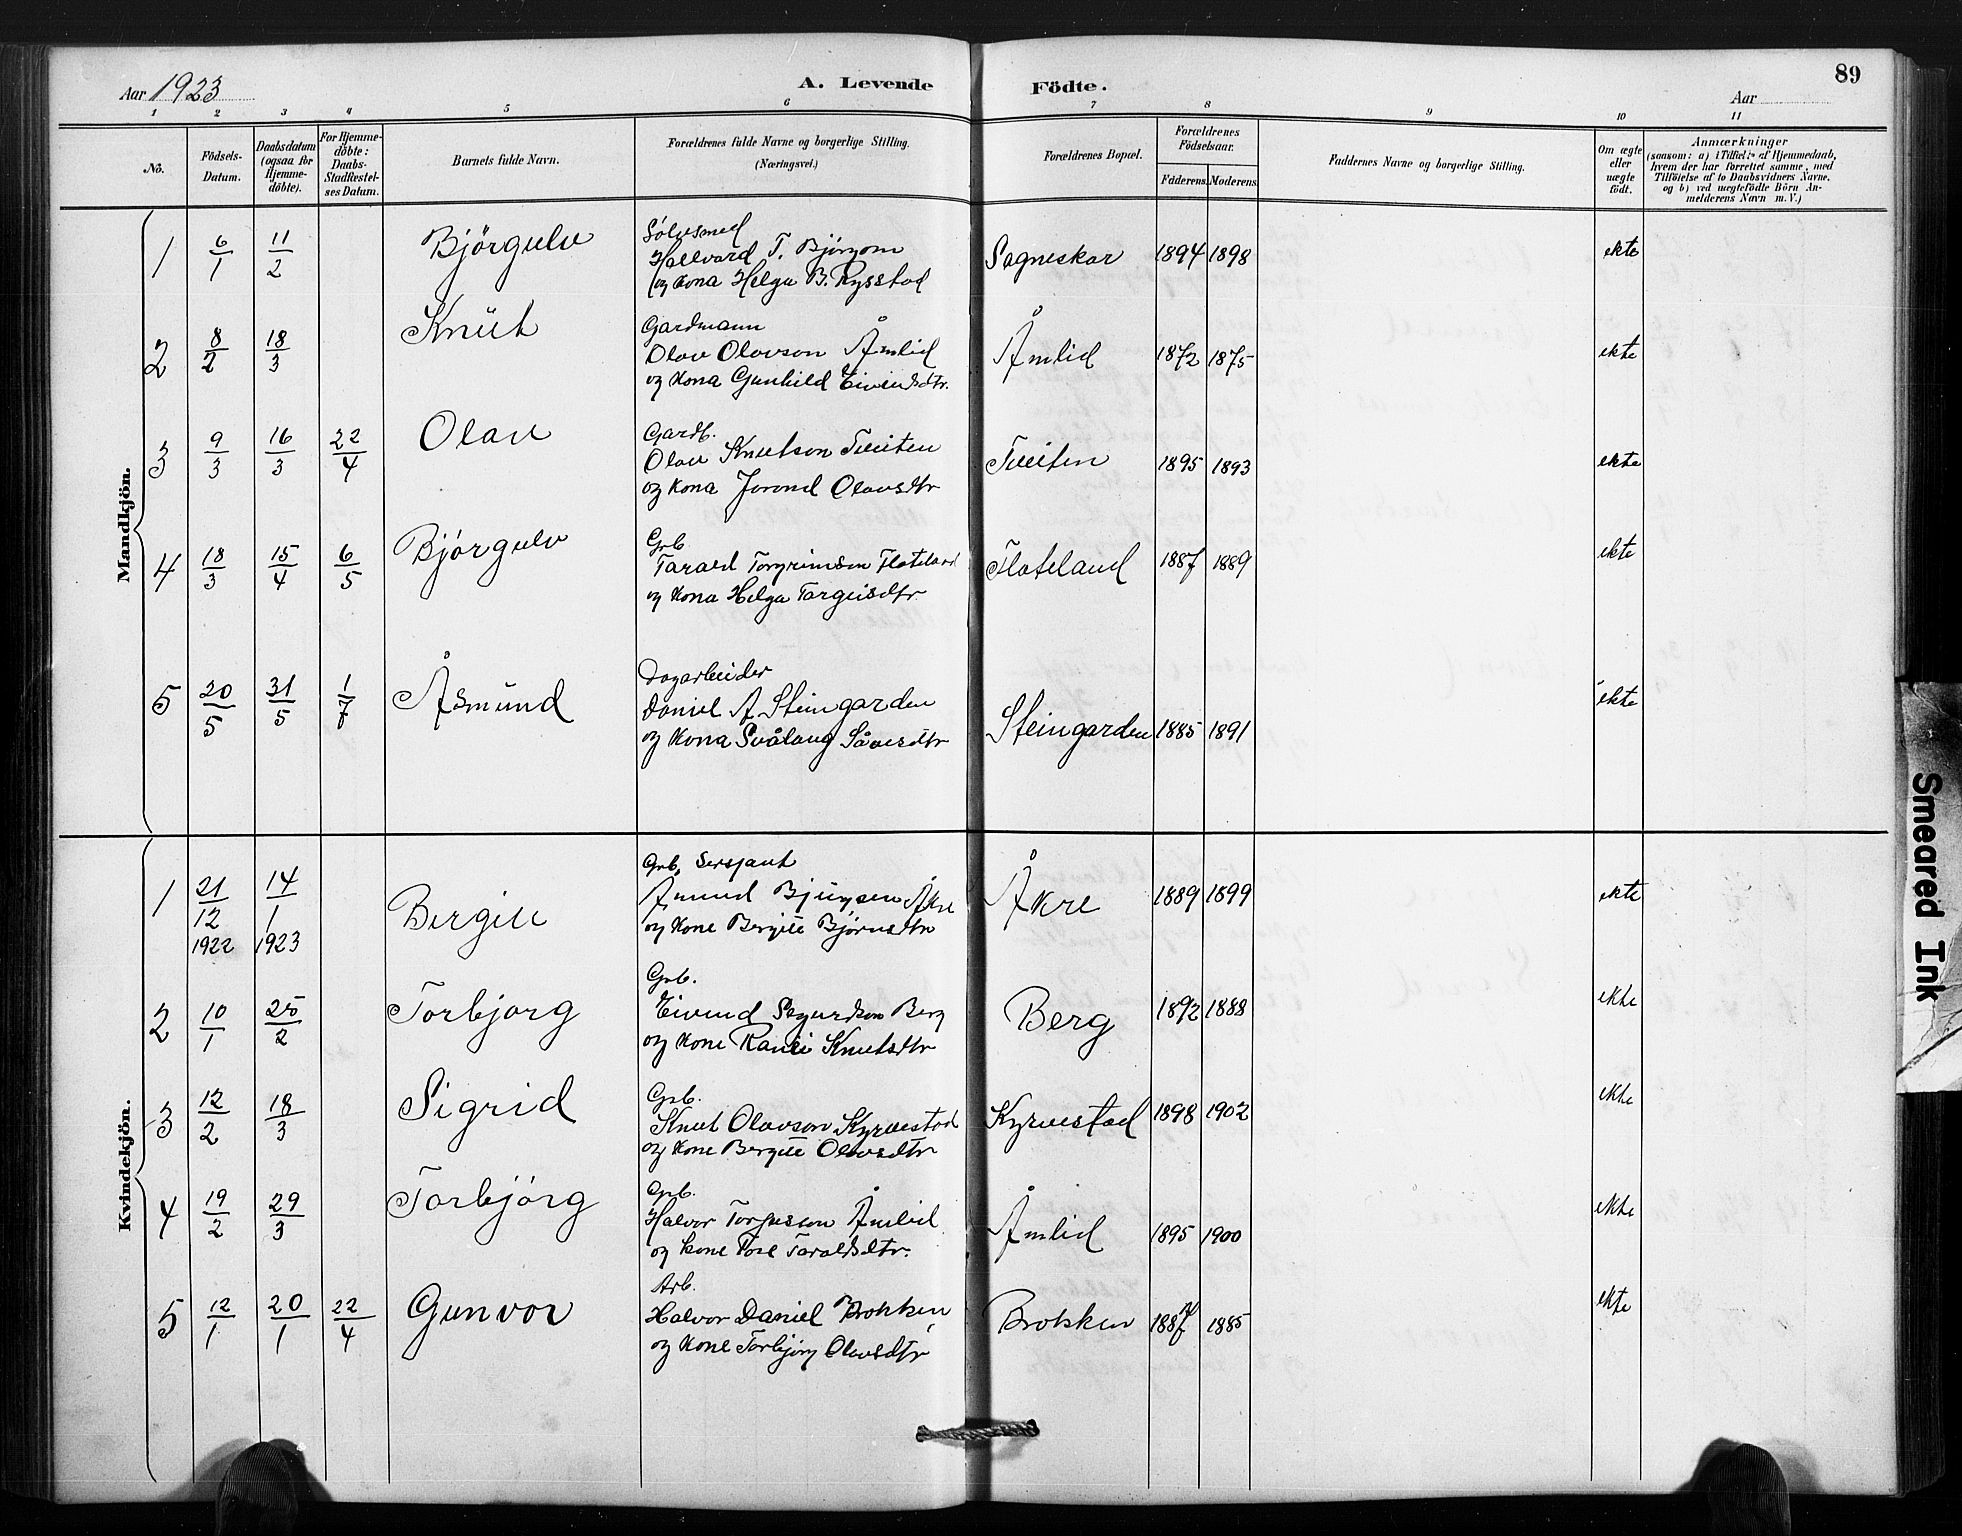 Aar 1923
A. Levende
Födte.
89
Aar
1 2 3 4 5 6 7 8 9 10 11
No.
Födsels-Datum.
Daabsdatum (ogsaa for Hjemme-döbte).
For Hjemme-döbte: Daabs-Stadfæstel-ses Datum.
Barnets fulde Navn.
Forældrenes fulde Navne og borgerlige Stilling.
(Næringsvei.)
Forældrenes Bopæl.
Forældrenes Födselsaar.
Faderens. Moderens.
Faddernes Navne og borgerlige Stilling.
Om ægte eller uægte födt.
Anmærkninger
(saasom: a) i Tilfælde af Hjemmedaab,
hvem der har forrettet samme, med
Tilföielse af to Daabsvidners Navne,
og b) ved uægtefödte Börn An-
melderens Navn m. V.)
Mandkjön.
Sølvsmed
1 6/1 11/2 Bjørgulv Hallvard T. Bjørgom Sagneskar 1894 1898 ekte
og kona Helga B. Rysstad
Gardmann
2 8/2 18/3 Knut Olav Olavson Åmlid Åmlid 1872 1875 ekte
og kona Gunhild Eivindsdtr.
Gardb.
3 9/3 16/3 22/4 Olav Olav Knutson Tveiten Tveiten 1895 1893 ekte
og kona Jorond Olavsdtr
Grb
4 18/3 15/4 6/5 Bjørgulv Tarald Torgrimson Flateland Flateland 1887 1889 ekte
og kona Helga Targeisdtr
Dagarbeider
5 20/5 31/5 1/7 Åsmund Daniel A Steingarden Steingarden 1885 1891 ekte
og kona Svålaug Såvesdtr
Kvindekjön.
Grb, Sersjant
1 21/12 1922 14/1 1923 Bergit Åkre Åkre 1889 1899 ekte
og kone Bergit Bjørnsdtr
Grb.
2 10/1 25/2 Torbjørg Eivind Sigurdson Berg Berg 1892 1888 ekte
og kone Ranei Knutsdtr
Grb.
3 12/2 18/3 Sigrid Knut Olavson Kyrvestad Kyrvestad 1898 1902 ekte
og kone Bergit Olavsdtr
Grb.
4 19/2 29/3 Torbjørg Halvor Torjusson Åmlid Åmlid 1895 1900 ekte
og kone Tore Taraldsdtr.
Arb.
5 12/1 20/1 22/4 Gunvor Halvor Daniel Brokken Brokken 1887 1885 ekte
og kone Torbjørg Olavsdtr
Smeared Ink